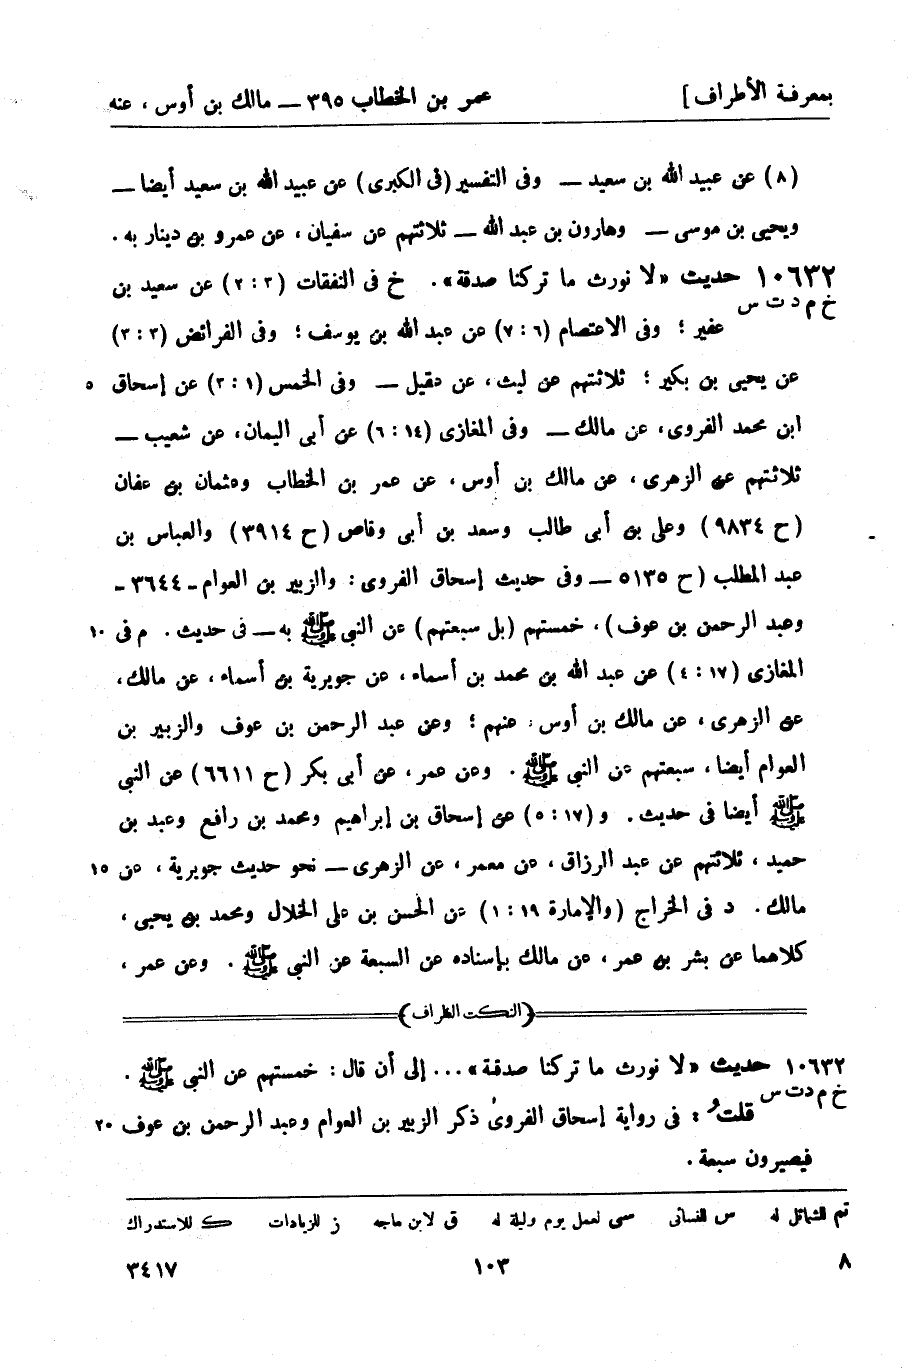 بمعرفة الأطراف] عمر بن الخطاب ٣٩٥ — مالك بن أوس ، عنه
(٨) عن عبيد الله بن سعيد — وفى التفسير (فى الكبرى) عن عبيد الله بن سعيد أيضا —
ويحيى بن موسى — وهارون بن عبد الله — ثلاثتهم عن سفيان ، عن عمرو بن دينار به .
١٠٦٣٢ حديث «لا نورث ما تركنا صدقة» . خ فى النفقات (٣ : ٢) عن سعيد بن
خ م د ت س
عفير ؛ وفى الاعتصام (٦ : ٧) عن عبد الله بن يوسف ؛ وفى الفرائض (٣ : ٣)
عن يحيى بن بكير ؛ ثلاثتهم عن ليث ، عن عقيل — وفى الخمس (١ : ٢) عن إسحاق ٥
ابن محمد الفروى ، عن مالك — وفى المغازى (١٤ : ٦) عن أبى اليمان ، عن شعيب —
ثلاثتهم عن الزهرى ، عن مالك بن أوس ، عن عمر بن الخطاب وعثمان بن عفان
(ح ٩٨٣٤) وعلى بن أبى طالب وسعد بن أبى وقاص (ح ٣٩١٤) والعباس بن
عبد المطلب (ح ٥١٣٥ — وفى حديث إسحاق الفروى : والزبير بن العوام - ٣٦٤٤ -
وعبد الرحمن بن عوف) ، خمستهم (بل سبعتهم) عن النبى ﷺ به — فى حديث . م فى ١٠
المغازى (١٧ : ٤) عن عبد الله بن محمد بن أسماء ، عن جويرية بن أسماء ، عن مالك ،
عن الزهرى ، عن مالك بن أوس ، عنهم ؛ وعن عبد الرحمن بن عوف والزبير بن
العوام أيضا ، سبعتهم عن النبى ﷺ . وعن عمر ، عن أبى بكر (ح ٦٦١١) عن النبى
ﷺ أيضا فى حديث . و (١٧ : ٥) عن إسحاق بن إبراهيم ومحمد بن رافع وعبد بن
حميد ، ثلاثتهم عن عبد الرزاق ، عن معمر ، عن الزهرى — نحو حديث جويرية ، عن ١٥
مالك . د فى الخراج (والإمارة ١٩ : ١) عن الحسن بن على الخلال ومحمد بن يحيى ،
كلاهما عن بشر بن عمر ، عن مالك بإسناده عن السبعة عن النبى ﷺ . وعن عمر ،
(النكت الظراف)
١٠٦٣٢ حديث «لا نورث ما تركنا صدقة» ... إلى أن قال : خمستهم عن النبى ﷺ .
خ م د ت س
قلتُ : فى رواية إسحاق الفروى ذكر الزبير بن العوام وعبد الرحمن بن عوف ٢٠
فيصيرون سبعة .
تم للشمائل له س للنسائى سى لعمل يوم وليلة له ق لابن ماجه ز للزيادات ك للاستدراك
٨ ١٠٣ ٣٤١٧